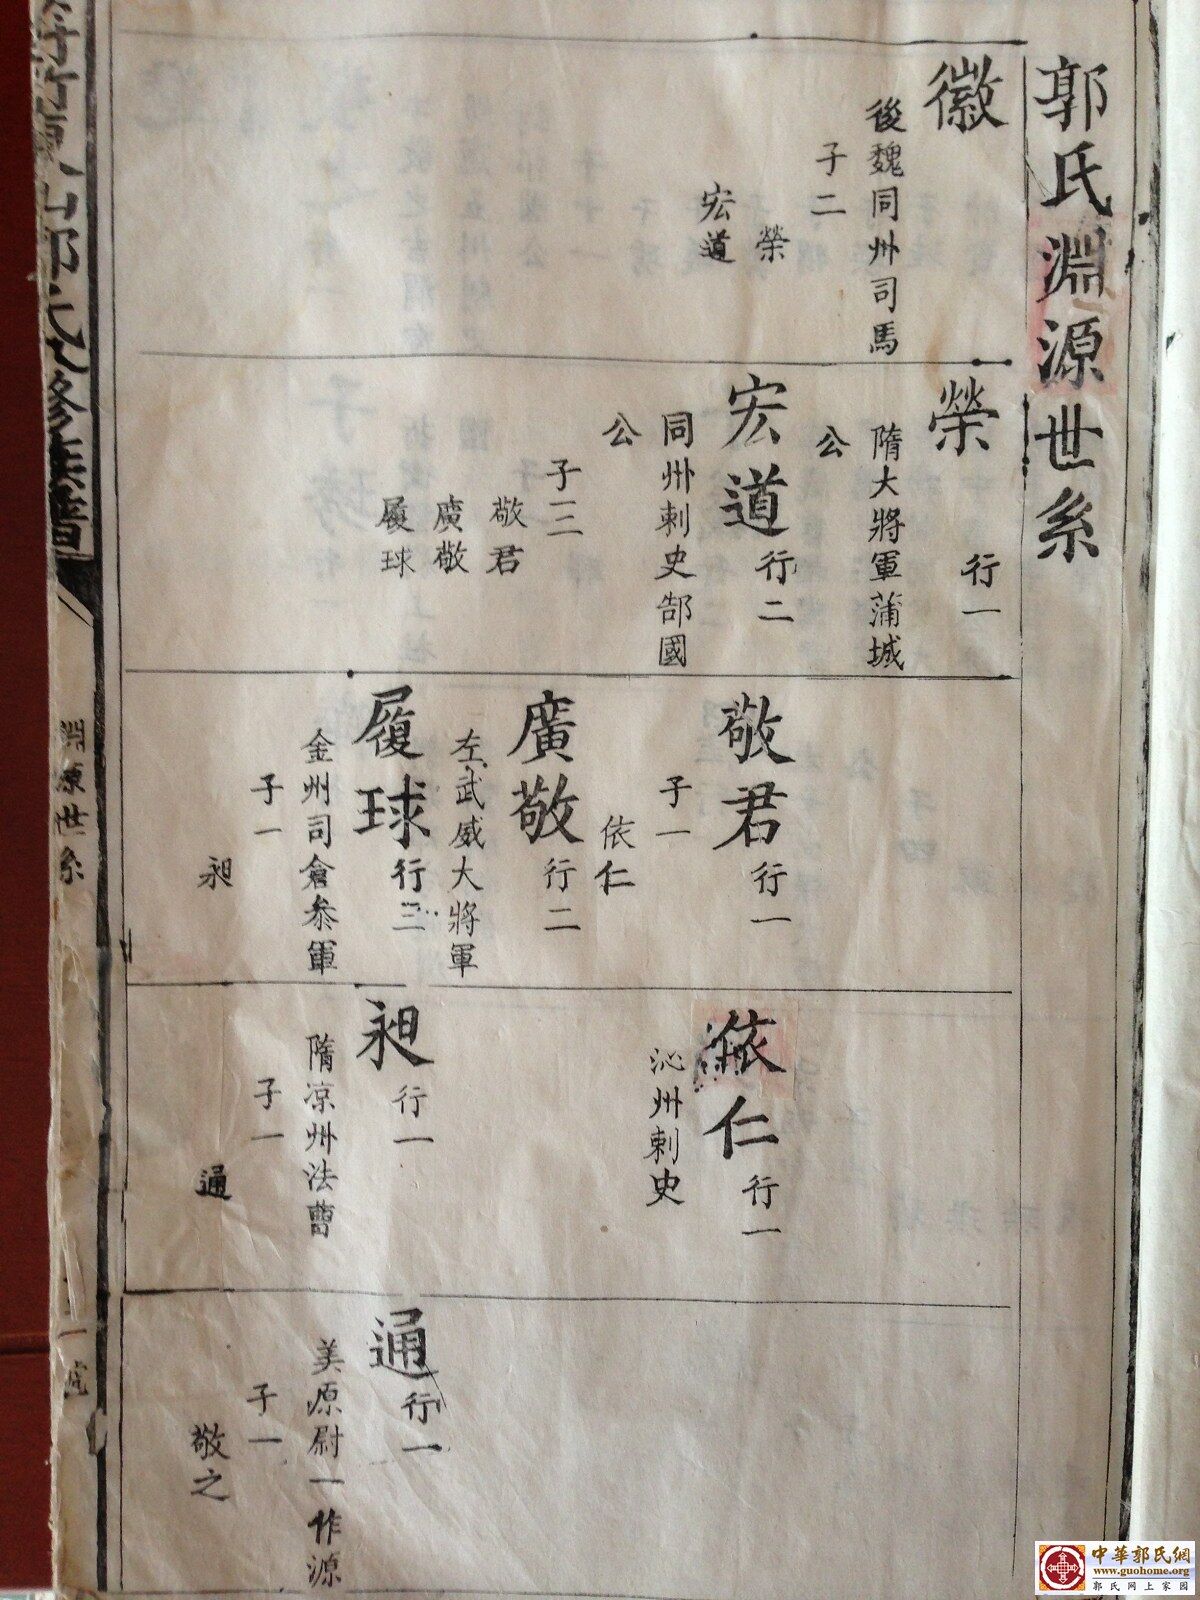 郭氏淵源世系
徽
後魏同州司馬
子二
榮
宏道
榮 行一
隋大將軍蒲城
公
宏道 行二
同州剌史郜國
公
子三
敬君
廣敬
履球
敬君 行一
子一
依仁
廣敬 行二
左武威大將軍
履球 行三
金州司倉叅軍
子一
昶
依仁 行一
沁州剌史
昶 行一
隋凉州法曹
子一
通
通 行一
美原尉一作源
子一
敬之
郭氏
修族譜
淵源世系
一號
中華郭氏網
www.guohome.org
郭氏网上家园